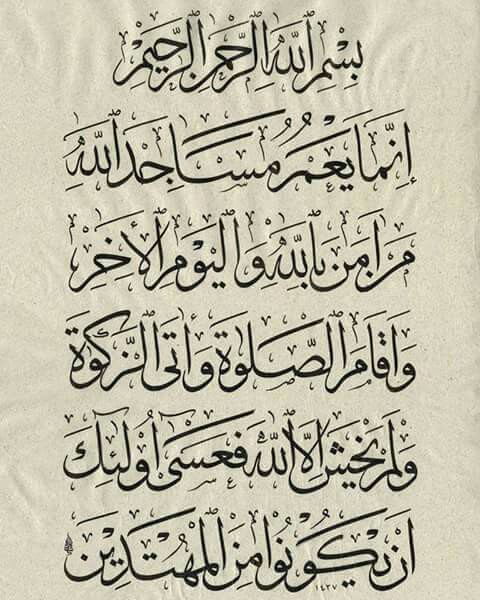 بِسْمِ اللَّهِ الرَّحْمَنِ الرَّحِيمِ
إِنَّمَا يَعْمُرُ مَسَاجِدَ اللَّهِ
مَنْ آمَنَ بِاللَّهِ وَالْيَوْمِ الْآخِرِ
وَأَقَامَ الصَّلَاةَ وَآتَى الزَّكَوٰةَ
وَلَمْ يَخْشَ إِلَّا اللَّهَ فَعَسَى أُولَئِكَ
أَنْ يَكُونُوا مِنَ الْمُهْتَدِينَ
١٤٣٧